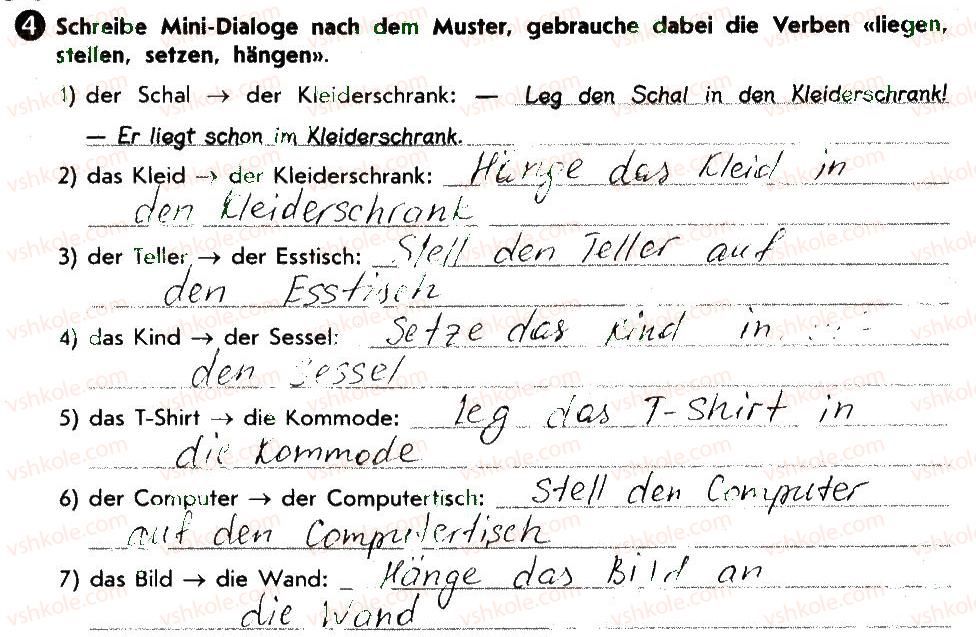 4 Schreibe Mini-Dialoge nach dem Muster, gebrauche dabei die Verben «liegen,
stellen, setzen, hängen».
1) der Schal → der Kleiderschrank: — Leg den Schal in den Kleiderschrank!
— Er liegt schon im Kleiderschrank.
2) das Kleid → der Kleiderschrank: Hänge das Kleid in
den Kleiderschrank
3) der Teller → der Esstisch: Stell den Teller auf
den Esstisch
4) das Kind → der Sessel: Setze das Kind in
den Sessel
5) das T-Shirt → die Kommode: Leg das T-Shirt in
die Kommode
6) der Computer → der Computertisch: Stell den Computer
auf den Computertisch
7) das Bild → die Wand: Hänge das Bild an
die Wand